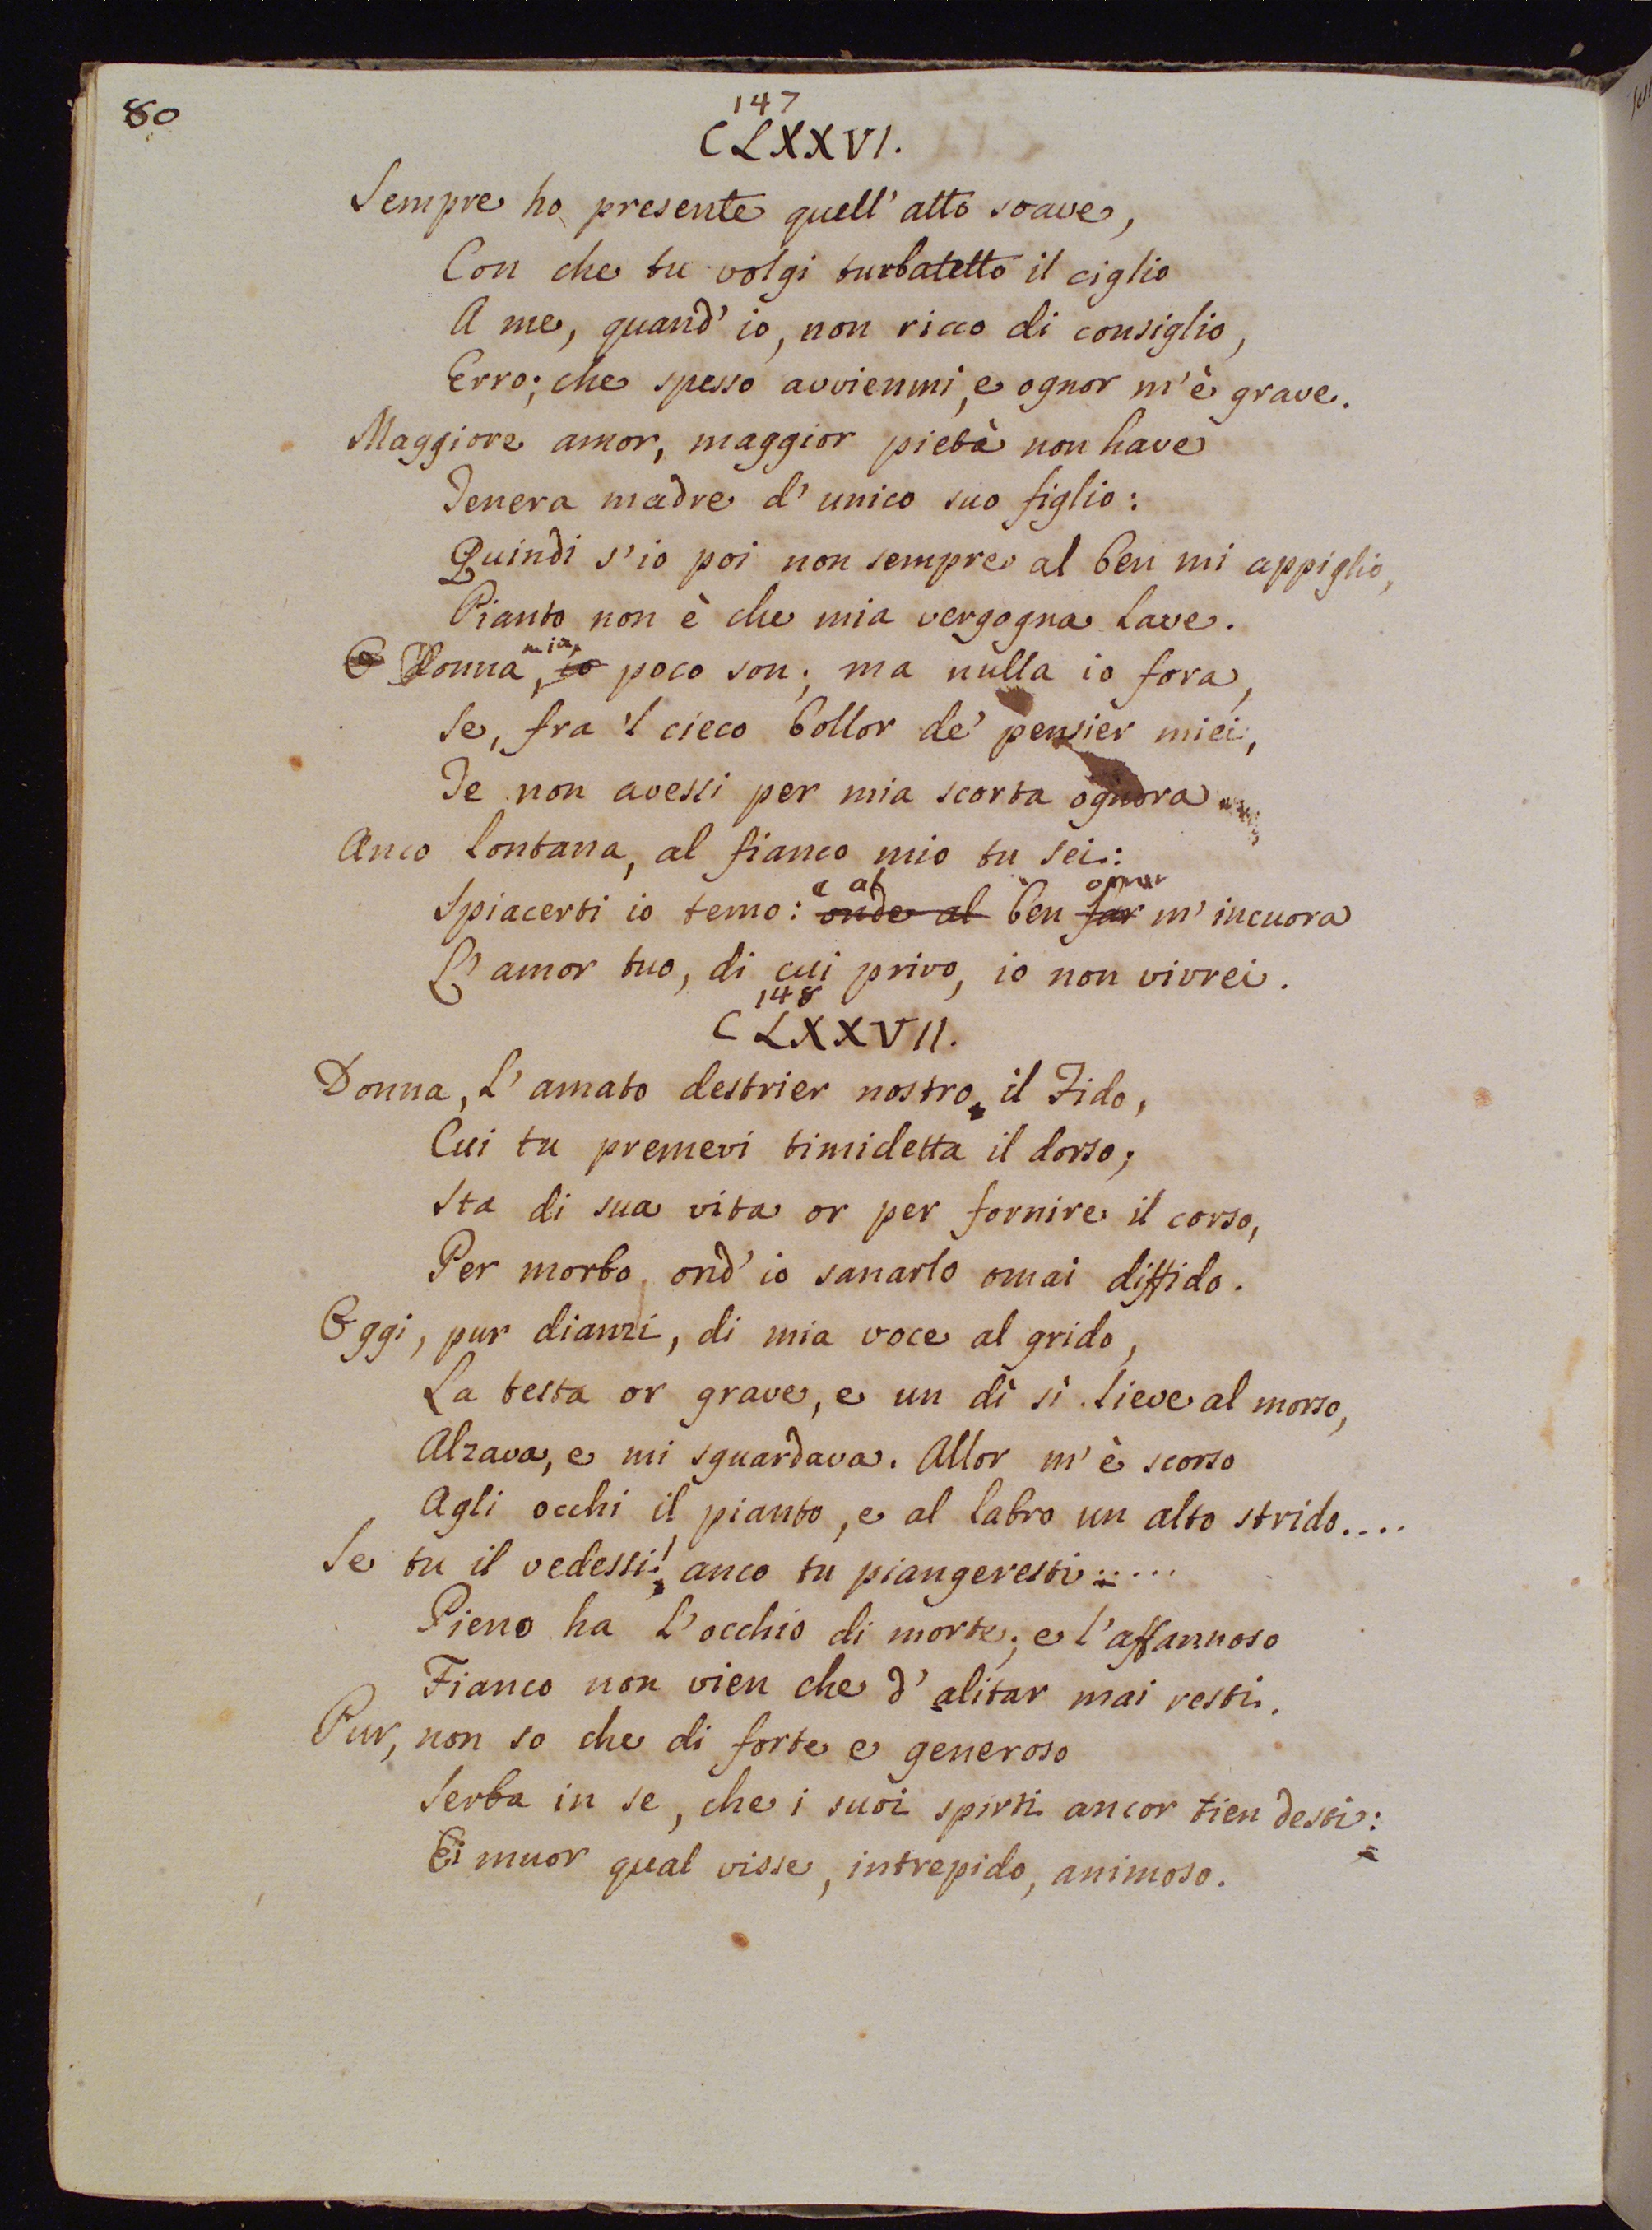 80
147
CLXXVI.
Sempre ho presente quell' atto soave,
Con che tu volgi turbatetto il ciglio
A me, quand' io, non ricco di consiglio,
Erro; che spesso avvienmi, e ognor m'è grave.
Maggiore amor, maggior pietà non have
Tenera madre d' unico suo figlio:
Quindi s'io poi non sempre al ben mi appiglio,
Pianto non è che mia vergogna lave.
mia,
O Donna, io poco son; ma nulla io fora,
Se, fra 'l cieco bollor de' pensier miei,
Te non avessi per mia scorta ognora
Anco lontana, al fianco mio tu sei:
e al ognor
Spiacerti io temo: onde al ben far m' incuora
L' amor tuo, di cui privo, io non vivrei.
148
CLXXVII.
Donna, l' amato destrier nostro, il Fido,
Cui tu premevi timidetta il dorso;
Sta di sua vita or per fornire il corso,
Per morbo, ond' io sanarlo omai diffido.
Oggi, pur dianzi, di mia voce al grido,
La testa or grave, e un dì sì lieve al morso,
Alzava, e mi sguardava. Allor m'è scorso
Agli occhi il pianto, e al labro un alto strido....
Se tu il vedessi! anco tu piangeresti.....
Pieno ha l'occhio di morte; e l'affannoso
Fianco non vien che d' alitar mai resti.
Pur, non so che di forte e generoso
Serba in se, che i suoi spirti ancor tien desti:
Ei muor qual visse, intrepido, animoso.